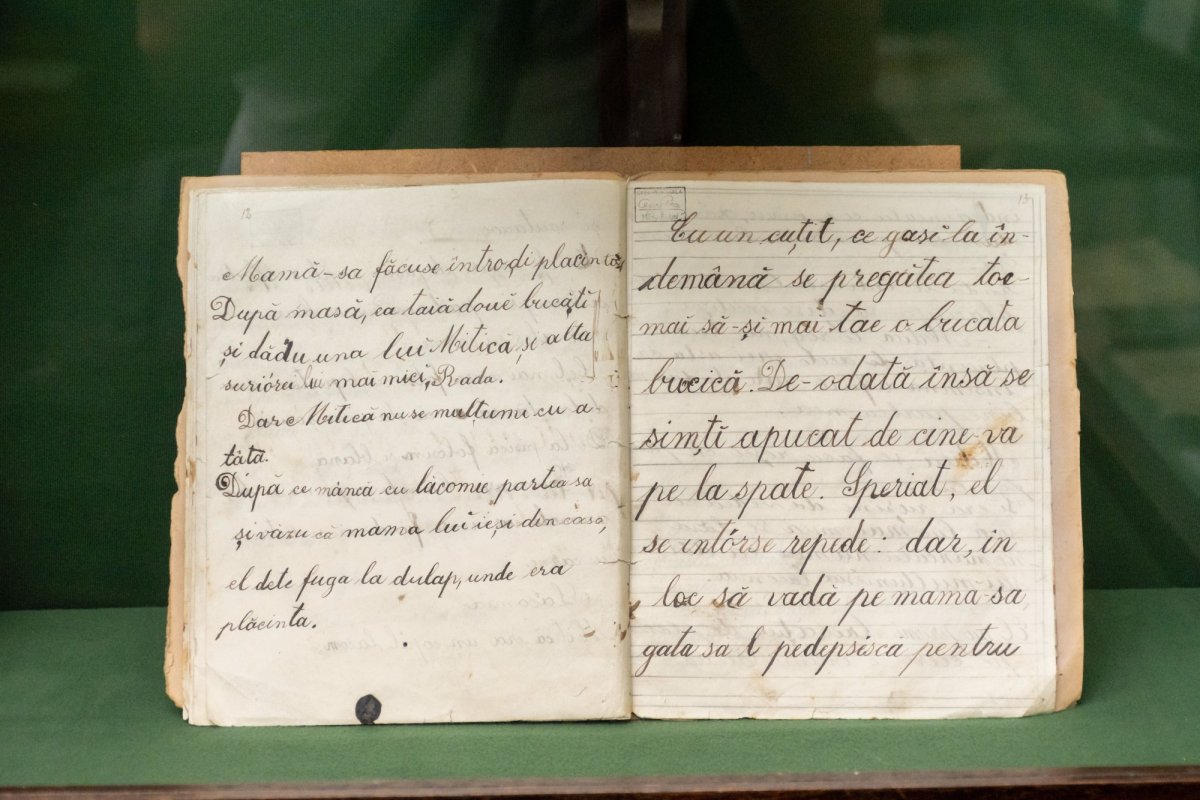 12
Mamă-sa făcuse într'o di placintă
După masă, ea taiă douĕ bucăti
și dădu una luĭ Mitică și alta
suriórei lui mai mici, Rada.
Dar Mitică nu se mulțumi cu a
tâta.
După ce mâncă cu lăcomie partea sa
și văzu că mama luĭ ieși din casă,
el dete fuga la dulap, unde era
plăcinta.
13
Cu un cuțit, ce gasi la în-
demână se pregătea toc-
mai să-și mai tae o bucata
bucică. De-odată însă se
simți apucat de cine-va
pe la spate. Speriat, el
se intórse repede: dar, in
loc să vadă pe mama-sa
gata sa l pedepsisca pentru